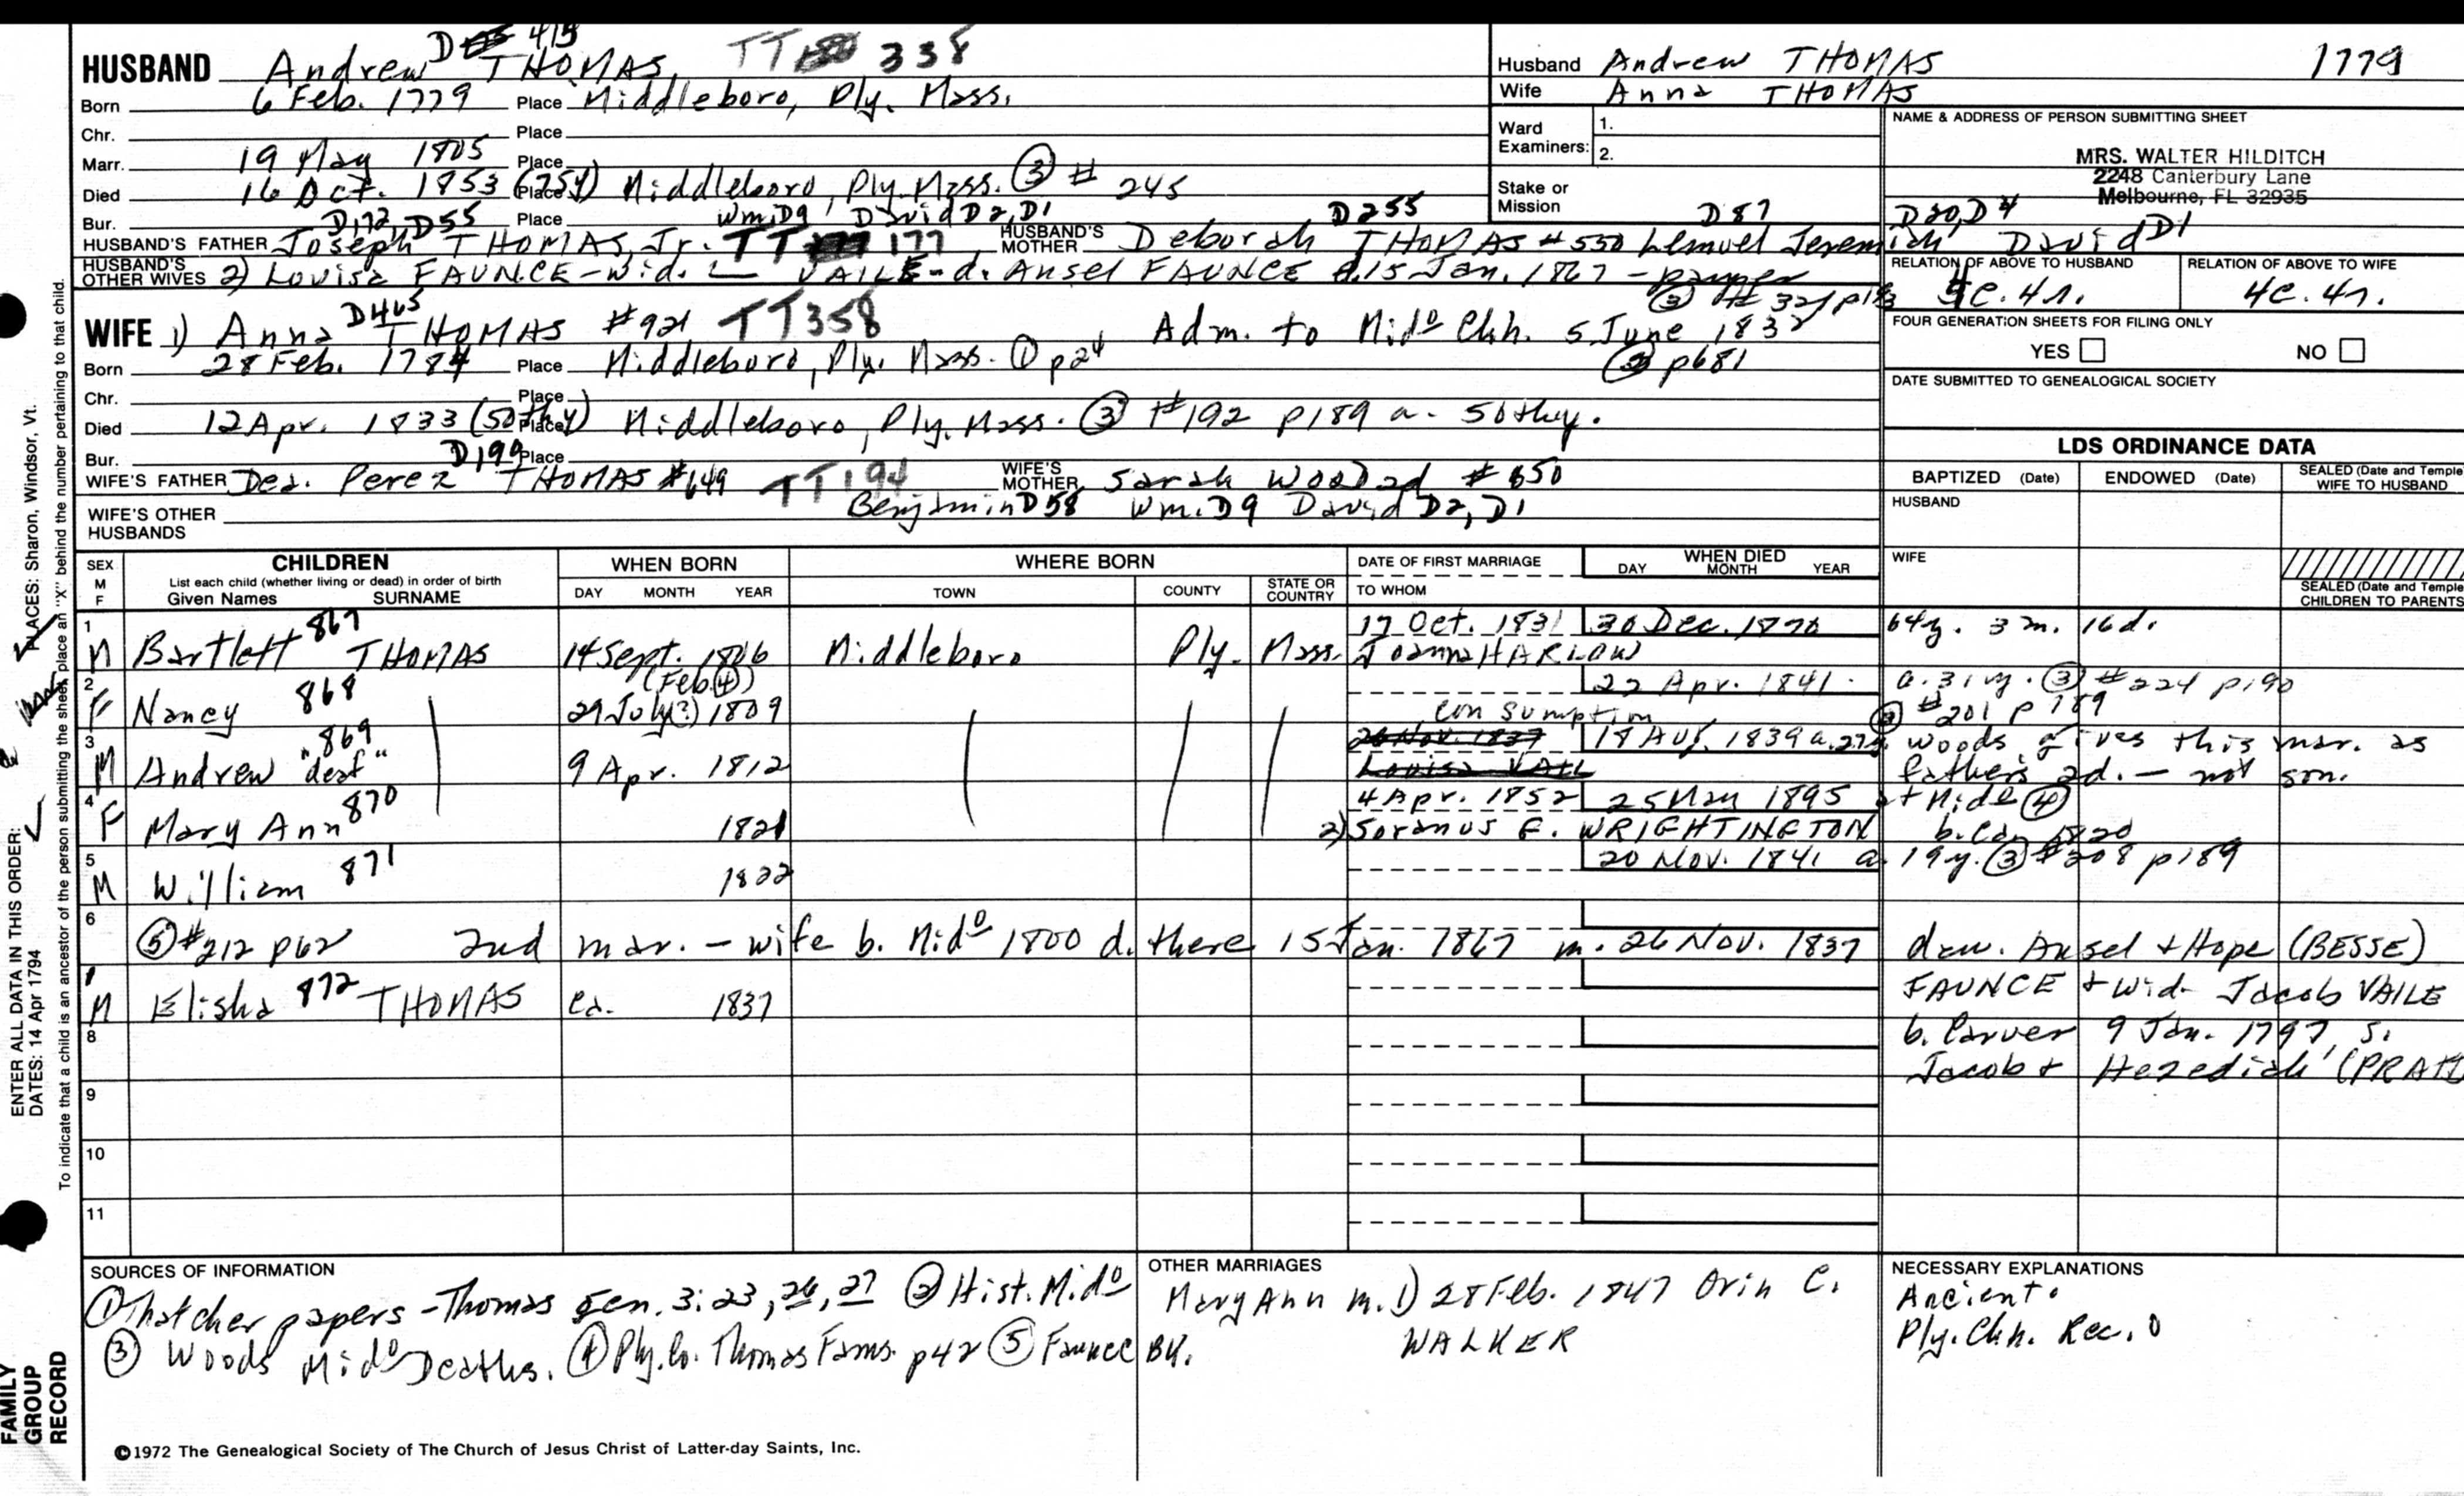 HUSBAND Andrew THOMAS D 415 TT 338
Born 6 Feb. 1779 Place Middleboro, Ply. Mass.
Chr. Place
Marr. 19 May 1805 Place
Died 16 Oct. 1853 (75y) Place Middleboro, Ply. Mass. ③ # 245
Bur. Place
D172, D55 Wm. D9 David D2, D1 D255 D87 D20, D4
HUSBAND'S FATHER Joseph THOMAS, Jr. TT 177 HUSBAND'S MOTHER Deborah THOMAS #550 Lemuel Jeremiah David D1
HUSBAND'S OTHER WIVES 2) Louisa FAUNCE - wid. VAILE - d. Ansel FAUNCE d. 15 Jan. 1867 - pauper
③ # 321 p193
WIFE 1) Anna THOMAS D465 #921 TT358 Adm. to Mido Chh. 5 June 1832
② p681
Born 28 Feb. 1784 Place Middleboro, Ply. Mass. ① p24
Chr. Place
Died 12 Apr. 1833 (50thy) Place Middleboro, Ply. Mass. ③ #192 p189 a. 50thy.
Bur. Place
D199
WIFE'S FATHER Dea. Perez THOMAS #649 TT194 WIFE'S MOTHER Sarah Wood 2d #650
Benjamin D58 Wm. D9 David D2, D1
WIFE'S OTHER HUSBANDS
Husband Andrew THOMAS 1779
Wife Anna THOMAS
Ward Examiners: 1.
2.
Stake or Mission
NAME & ADDRESS OF PERSON SUBMITTING SHEET
MRS. WALTER HILDITCH
2248 Canterbury Lane
Melbourne, FL 32935
RELATION OF ABOVE TO HUSBAND RELATION OF ABOVE TO WIFE
4c. 4r. 4c. 4r.
FOUR GENERATION SHEETS FOR FILING ONLY
YES NO
DATE SUBMITTED TO GENEALOGICAL SOCIETY
LDS ORDINANCE DATA
BAPTIZED (Date) ENDOWED (Date) SEALED (Date and Temple) WIFE TO HUSBAND
HUSBAND
WIFE
SEALED (Date and Temple) CHILDREN TO PARENTS
SEX M F
CHILDREN
List each child (whether living or dead) in order of birth
Given Names SURNAME
WHEN BORN
DAY MONTH YEAR
WHERE BORN
TOWN COUNTY STATE OR COUNTRY
DATE OF FIRST MARRIAGE
TO WHOM
WHEN DIED
DAY MONTH YEAR
1 M Bartlett 867 THOMAS 14 Sept. 1806 Middleboro Ply. Mass. 17 Oct. 1831 30 Dec. 1870 64y. 3m. 16d.
Joanna HARLOW
2 F Nancy 868 (Feb. ④) 29 July(?) 1809 22 Apr. 1841 a. 31y. ③ #224 p190
consumption ③ #201 p189
3 M Andrew 869 "deaf" 9 Apr. 1812 26 Nov. 1837 18 Aug. 1839 a. 27y. Woods gives this mar. as
Louisa VAIL father's 2d. - not son.
4 F Mary Ann 870 1821 4 Apr. 1852 25 May 1895 at Mido ④
2) Soranus E. WRIGHTINGTON b. ca. 1820
5 M William 871 1822 20 Nov. 1841 a. 19y. ③ #208 p189
6 ⑤ #212 p62 2nd mar. - wife b. Mido 1800 d. there 15 Jan. 1867 m. 26 Nov. 1837 dau. Ansel + Hope (BESSE)
FAUNCE + wid. Jacob VAILE
M Elisha 872 THOMAS ca. 1837
b. Carver 9 Jan. 1797, s.
Jacob + Hezediah (PRATT)
8
9
10
11
SOURCES OF INFORMATION
① Thatcher papers - Thomas gen. 3:23, 26, 27 ② Hist. Mido
③ Woods Mido Deaths. ④ Ply. Co. Thomas Fams. p42 ⑤ Faunce BK.
OTHER MARRIAGES
Mary Ann m. 1) 28 Feb. 1847 Orin C.
WALKER
NECESSARY EXPLANATIONS
Ancient.
Ply. Chh. Rec. 0
©1972 The Genealogical Society of The Church of Jesus Christ of Latter-day Saints, Inc.
FAMILY GROUP RECORD
ENTER ALL DATA IN THIS ORDER:
DATES: 14 Apr 1794
PLACES: Sharon, Windsor, Vt.
To indicate that a child is an ancestor of the person submitting the sheet, place an "X" behind the number pertaining to that child.